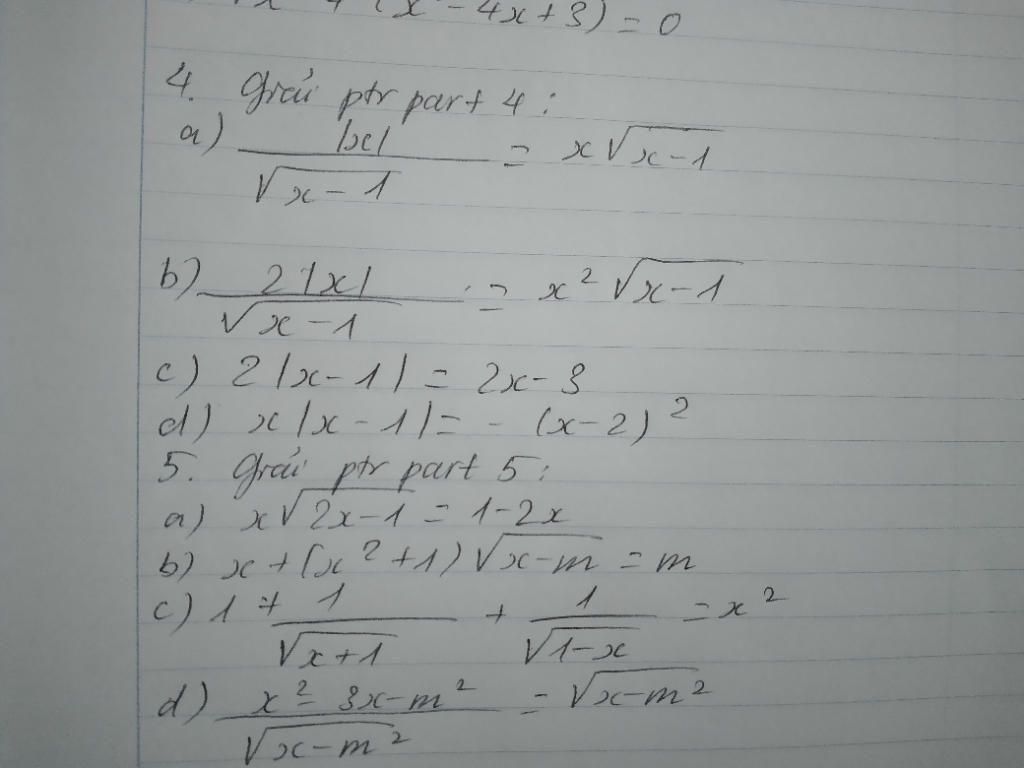 √x-4 (x² - 4x + 3) = 0
4. Giải ptr part 4 :
a) |x| / √(x-1) = x√(x-1)
b) 2|x| / √(x-1) = x²√(x-1)
c) 2|x-1| = 2x-3
d) x|x-1| = -(x-2)²
5. Giải ptr part 5 :
a) x√(2x-1) = 1-2x
b) x+(x²+1)√(x-m) = m
c) 1 + 1/√(x+1) + 1/√(1-x) = x²
d) (x²-3x-m²) / √(x-m²) = √(x-m²)